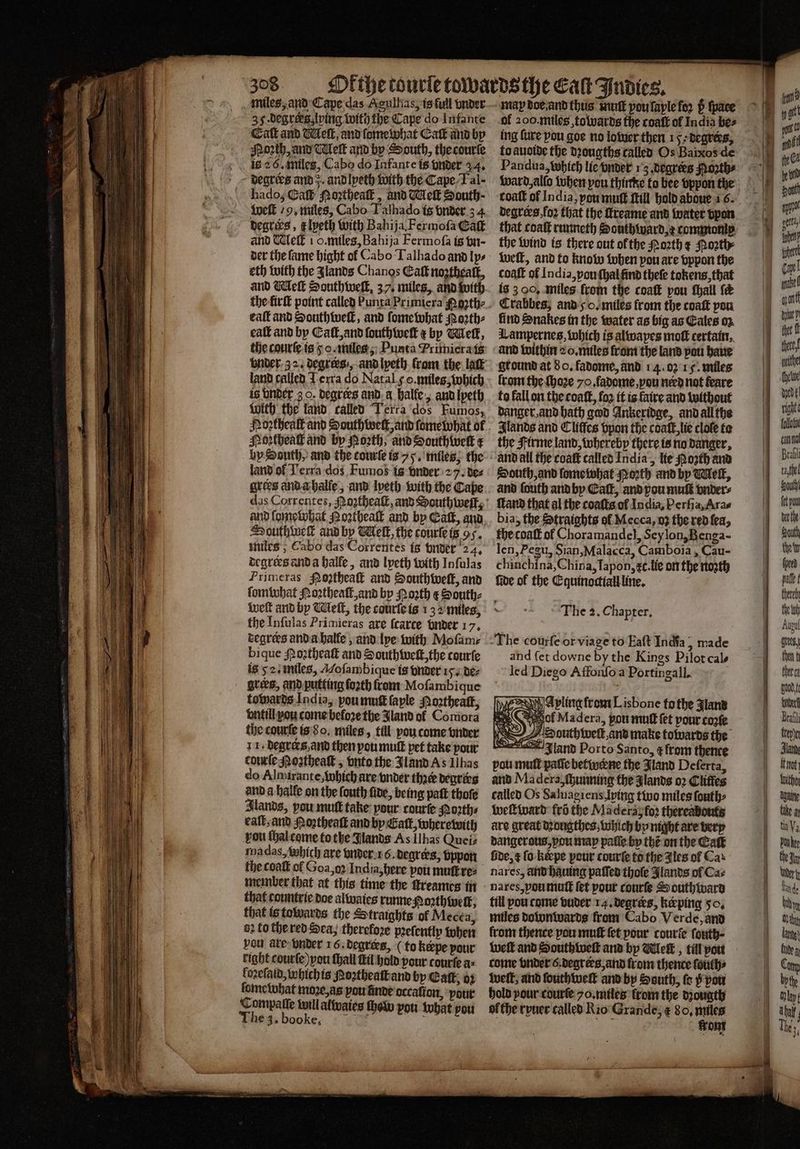 308 Of the course towards the East Indies.
miles, and Cape das Agulhas, is full vnder
35. degrées, lying with the Cape do Infante
East and West, and somewhat East and by
North, and West and by South, the course
is 26. miles, Cabo do Infante is vnder 34.
degrées and ⅓. and lyeth with the Cape Tal-
hado, East Northeast, and West South-
west 19. miles, Cabo Talhado is vnder 34
degrées, & lyeth with Bahija Fermosa East
and West 10. miles, Bahija Fermosa is vn-
der the same hight of Cabo Talhado and ly-
eth with the Ilands Changs East northeast,
and West Southwest, 37. miles, and with
the first point called Punta Primiera North-
east and Southwest, and somewhat North-
east and by East, and southwest & by West,
the course is 50. miles, Punta Primiera is
vnder 32. degrées, and lyeth from the last
land called Terra do Natal 50. miles, which
is vnder 30. degrées and a halfe, and lyeth
with the land called Terra dos Fumos,
Northeast and Southwest, and somewhat of
Northeast and by North, and Southwest &
by South, and the course is 75. miles, the
land of Terra dos Fumos is vnder 27. de-
grées and a halfe, and lyeth with the Cape
das Correntes, Northeast, and Southwest,
and somewhat Northeast and by East, and
Southwest and by West, the course is 95.
miles, Cabo das Correntes is vnder 24.
degrées and a halfe, and lyeth with Insulas
Primeras Northeast and Southwest, and
somwhat Northeast, and by North & South-
west and by West, the course is 132 miles,
the Insulas Primieras are scarce vnder 17.
degrées and a halfe, and lye with Mosam-
bique Northeast and Southwest, the course
is 52. miles, Mosambique is vnder 15. de-
grées, and putting forth from Mosambique
towards India, you must saple Northeast,
vntill you come before the Iland of Comora
the course is 80. miles, till you come vnder
11. degrées, and then you must yet take your
course Northeast, vnto the Iland As Ilhas
do Almirante, which are vnder thrée degrées
and a halfe on the south side, being past those
Ilands, you must take your course North-
east, and Northeast and by East, wherewith
you shal come to the Ilands As Ilhas Quei-
madas, which are vnder 16. degrées, vppon
the coast of Goa, or India, here you must re-
member that at this time the streames in
that countrie doe alwaies runne Northwest,
that is towards the Straights of Mecca,
or to the red Sea, therefore presently when
you are vnder 16. degrées, (to kéepe your
right course) you shall stil hold your course a-
foresaid, which is Northeast and by East, or
somewhat more, as you finde occasion, your
Compasse will alwaies shew you what you
The 3. booke.
may doe, and thus must you saple for þe space
of 200. miles, towards the coast of India be-
ing sure you goe no lower then 15. degrées,
to auoide the droughts called Os Baixos de
Pandua, which lie vnder 13. degrées North-
ward, also when you thinke to bee vppon the
coast of India, you must still hold aboue 16.
degrées, for that the streame and water vpon
that coast runneth Southward, & commonly
the wind is there out of the North & North-
west, and to know when you are vppon the
coast of India, you shal find these tokens, that
is 300. miles from the coast you shall sée
Crabbes, and 50. miles from the coast you
find Snakes in the water as big as Eales or
Lampernes, which is alwayes most certain,
and within 20. miles from the land you haue
ground at 80. fadome, and 14. or 15. miles
from the shore 70. fadome, you néed not feare
to fall on the coast, for it is faire and without
danger, and hath good Ankeridge, and all the
Ilands and Cliffes vpon the coast, lie close to
the Firme land, whereby there is no danger,
and all the coast called India, lie North and
South, and somewhat North and by West,
and south and by East, and you must vnder-
stand that al the coasts of India, Persia, Ara-
bia, the Straights of Mecca, or the red sea,
the coast of Choramandel, Seylon, Benga-
len, Pegu, Sian, Malacca, Camboia, Cau-
chinchina, China, Iapon, &c. lie on the north
side of the Equinoctiall line.
The 2. Chapter.
The course or viage to East India, made
and set downe by the Kings Pilot cal-
led Diego Affonso a Portingall.
SAyling from Lisbone to the Iland
of Madera, you must set your corse
Southwest, and make towards the
Iland Porto Santo, & from thence
you must passe betwéene the Iland Deserta,
and Madera, shunning the Ilands or Cliffes
called Os Saluagiens, lying two miles south-
westward frõ the Madera, for thereabouts
are great droughtes, which by night are very
dangerous, you may passe by thẽ on the East
side, & so kéepe your course to the Iles of Ca-
nares, and hauing passed those Ilands of Ca-
nares, you must set your course Southward
till you come vnder 14. degrées, kéeping 50.
miles downwards from Cabo Verde, and
from thence you must set your course south-
west and Southwest and by West, till you
come vnder 6. degrées, and from thence south-
west, and southwest and by South, so þt you
hold your course 70. miles from the drougth
of the ryuer called Rio Grande, & 80. miles
from